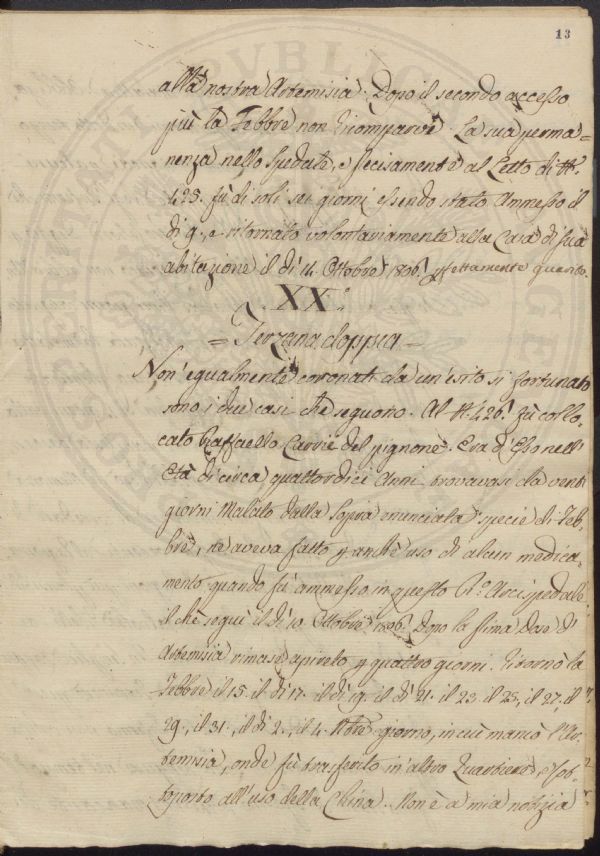 13
alla nostra Artemisia. Dopo il secondo accesso
più la Febbre non ricomparve. La sua perma=
nenza nello Spedale, e precisamente al Letto di N.º
425. fù di soli sei giorni essendo stato Ammesso il
dì 9, e ritornato volontariamente alla Casa di sua
abitazione il dì 14. Ottobre 1806. perfettamente guarito.
XX.º
= Terzana doppia =
Non egualmente coronati da un'esito sì fortunato
sono i due casi che seguono. Al N.º 426. fù collo
cato Raffaello del pignone. Era d'Esso nell'
Età di circa quattordici Anni trovavasi da venti
giorni Malato dalla sopra enunciata specie di Feb-
bre, ne aveva fatto p anche uso di alcun medica-
mento quando fù ammesso in questo R.º Arcispedale
il che seguì il dì 10. Ottobre 1806. Dopo la prima Dose d'
Artemisia rimase apireto p quattro giorni. Ritornò la
Febbre il 15. il dì 17. il dì 19. il dì 21. il 23. il 25, il 27, il
29, il 31, il dì 2, il 4. 9bre giorno, in cui mancò l'Ar-
temisia, onde fù trasferito in altro Quartiere, e sot-
toposto all'uso della China. Non è a mia notizia